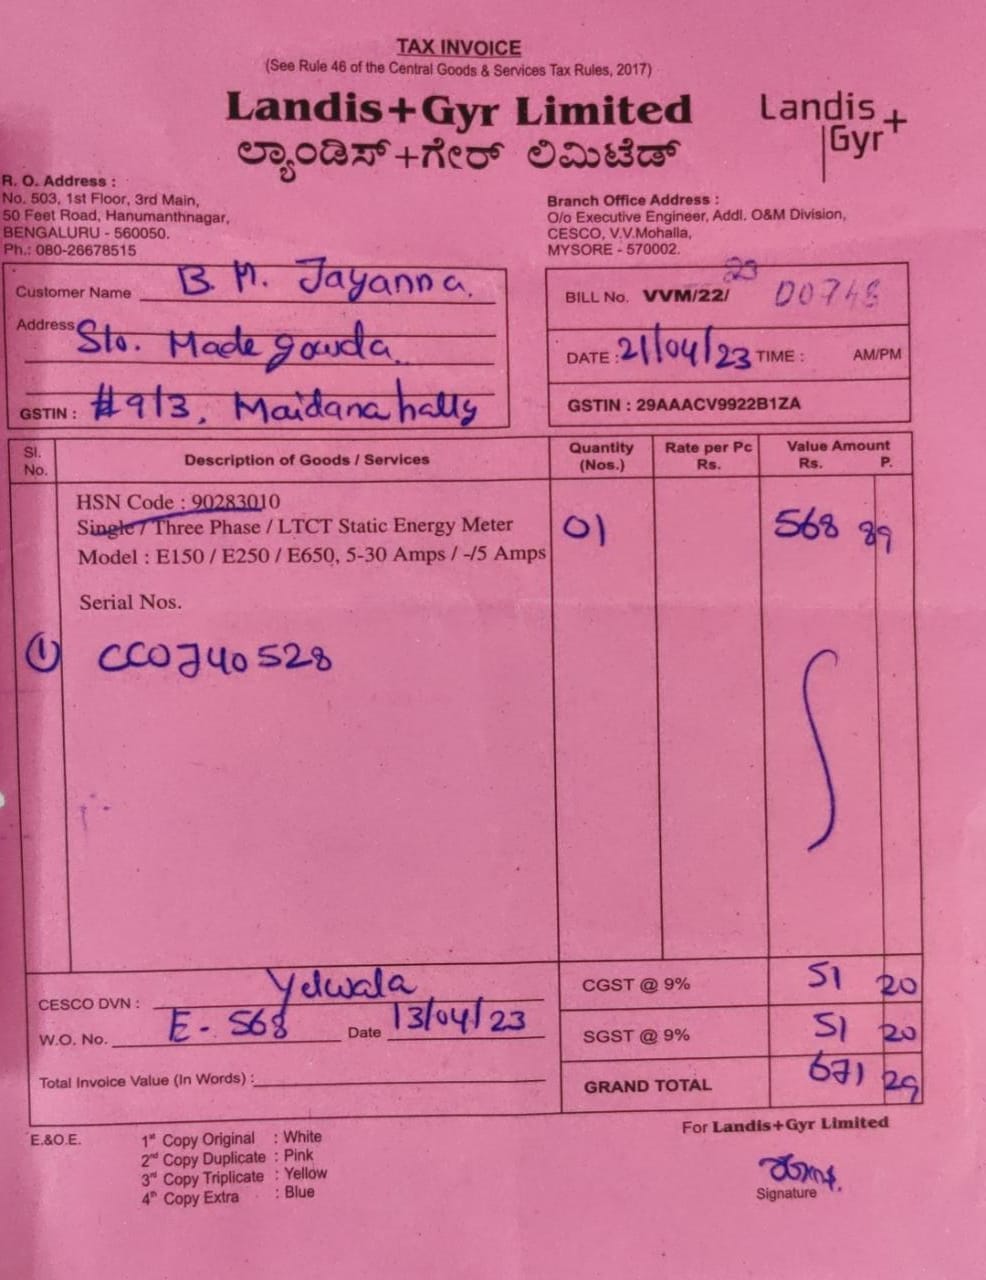 TAX INVOICE
(See Rule 46 of the Central Goods & Services Tax Rules, 2017)
Landis+Gyr Limited
ಲ್ಯಾಂಡಿಸ್+ಗೇರ್ ಲಿಮಿಟೆಡ್
Landis
Gyr+
R. O. Address :
No. 503, 1st Floor, 3rd Main,
50 Feet Road, Hanumanthnagar,
BENGALURU - 560050.
Ph.: 080-26678515
Branch Office Address :
O/o Executive Engineer, Addl. O&M Division,
CESCO, V.V.Mohalla,
MYSORE - 570002.
Customer Name B. M. Jayanna.
Address S/o. Made gowda.
GSTIN : #9/3, Maidanahally
BILL No. VVM/22/23 00748
DATE : 21/04/23 TIME : AM/PM
GSTIN : 29AAACV9922B1ZA
Sl. No. Description of Goods / Services Quantity (Nos.) Rate per Pc Rs. Value Amount Rs. P.
HSN Code : 90283010
Single / Three Phase / LTCT Static Energy Meter 01 568 89
Model : E150 / E250 / E650, 5-30 Amps / -/5 Amps
Serial Nos.
1 CCOJ40528
CESCO DVN : Yelwala
W.O. No. E-568 Date 13/04/23
Total Invoice Value (In Words) :
CGST @ 9% 51 20
SGST @ 9% 51 20
GRAND TOTAL 671 29
E.&O.E.
1st Copy Original : White
2nd Copy Duplicate : Pink
3rd Copy Triplicate : Yellow
4th Copy Extra : Blue
For Landis+Gyr Limited
Signature